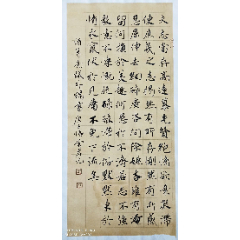 夫志當存高遠慕先賢絕情欲棄疑滯
使庶幾之志揭然有所存惻然有所感
忍屈伸去細碎廣咨問除嫌吝雖有淹
留何損於美趣何患於不濟若志不強
毅意不慷慨徒碌碌滯於俗默默束於
情永竄伏於凡庸不免於下流矣